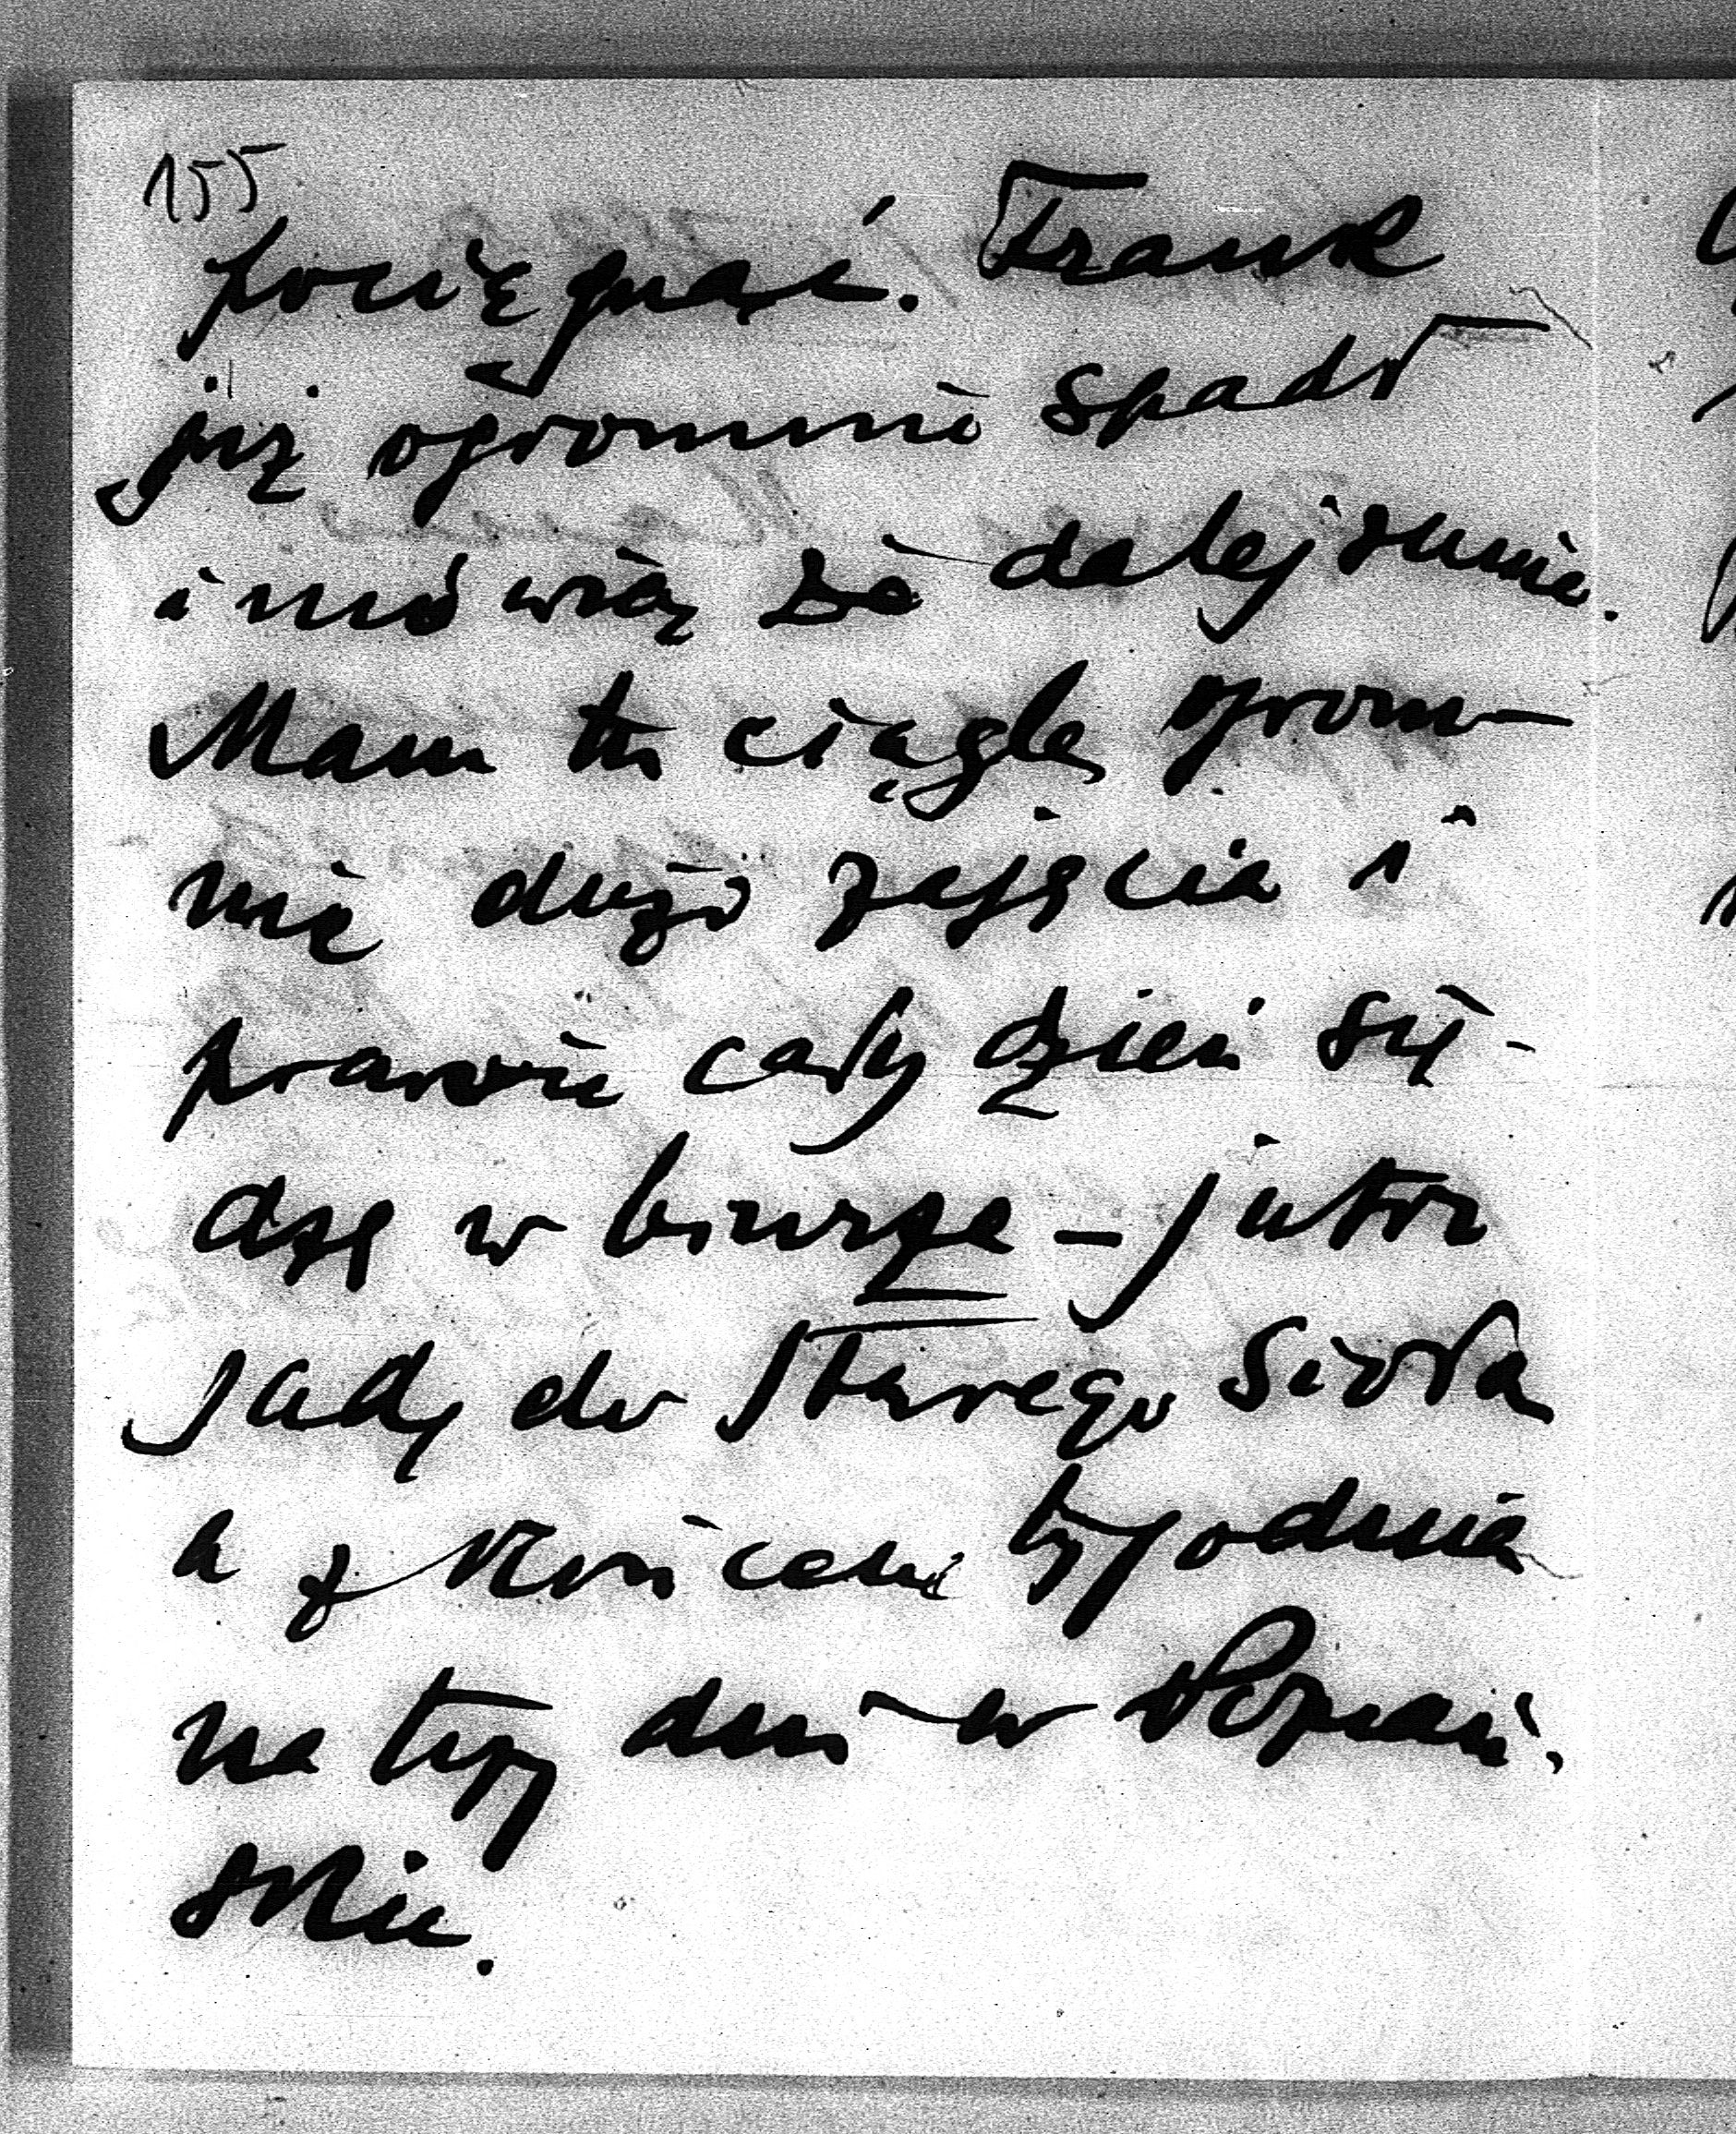 155
pociągnąć. Frank
już ogromnie spadł
i mówią że dalej runie.
Mam tu ciągle ogrom-
nie dużo zajęcia i
prawie cały dzień się-
dzę w biurze – jutro
jadę do Starego Sioła
a z końcem tygodnia
na trzy dni w Poznań-
skie.